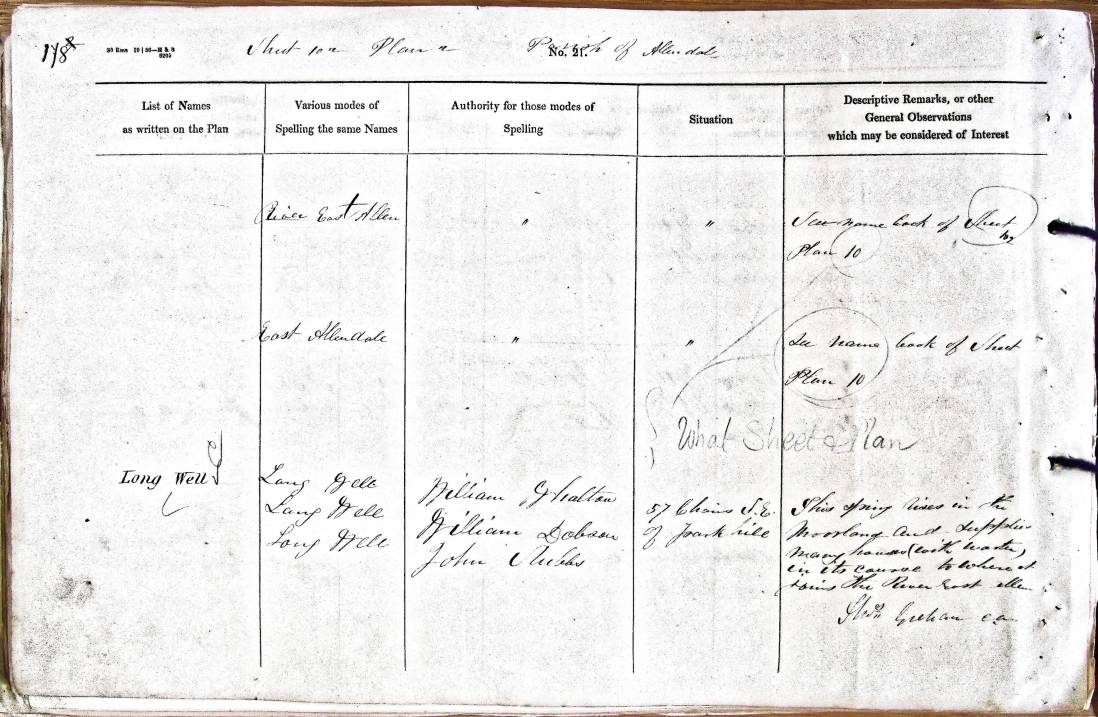 178
Sheet 102 Plan 2 No. 21. Parish of Allendale
List of Names
as written on the Plan
Various modes of
Spelling the same Names
Authority for those modes of
Spelling
Situation
Descriptive Remarks, or other
General Observations
which may be considered of Interest
River East Allen " " See name book of Sheet 102
Plan 10
East Allendale " " See name book of Sheet
Plan 10
What Sheet & Plan
Long Well
Long Well
Long Well
Long Well
William Whalton
William Dobson
John
57 Chains S.E.
of hill
This spring rises in the
Moorland and supplies
many houses (with water)
in its course to where it
joins the River East Allen
Graham ca